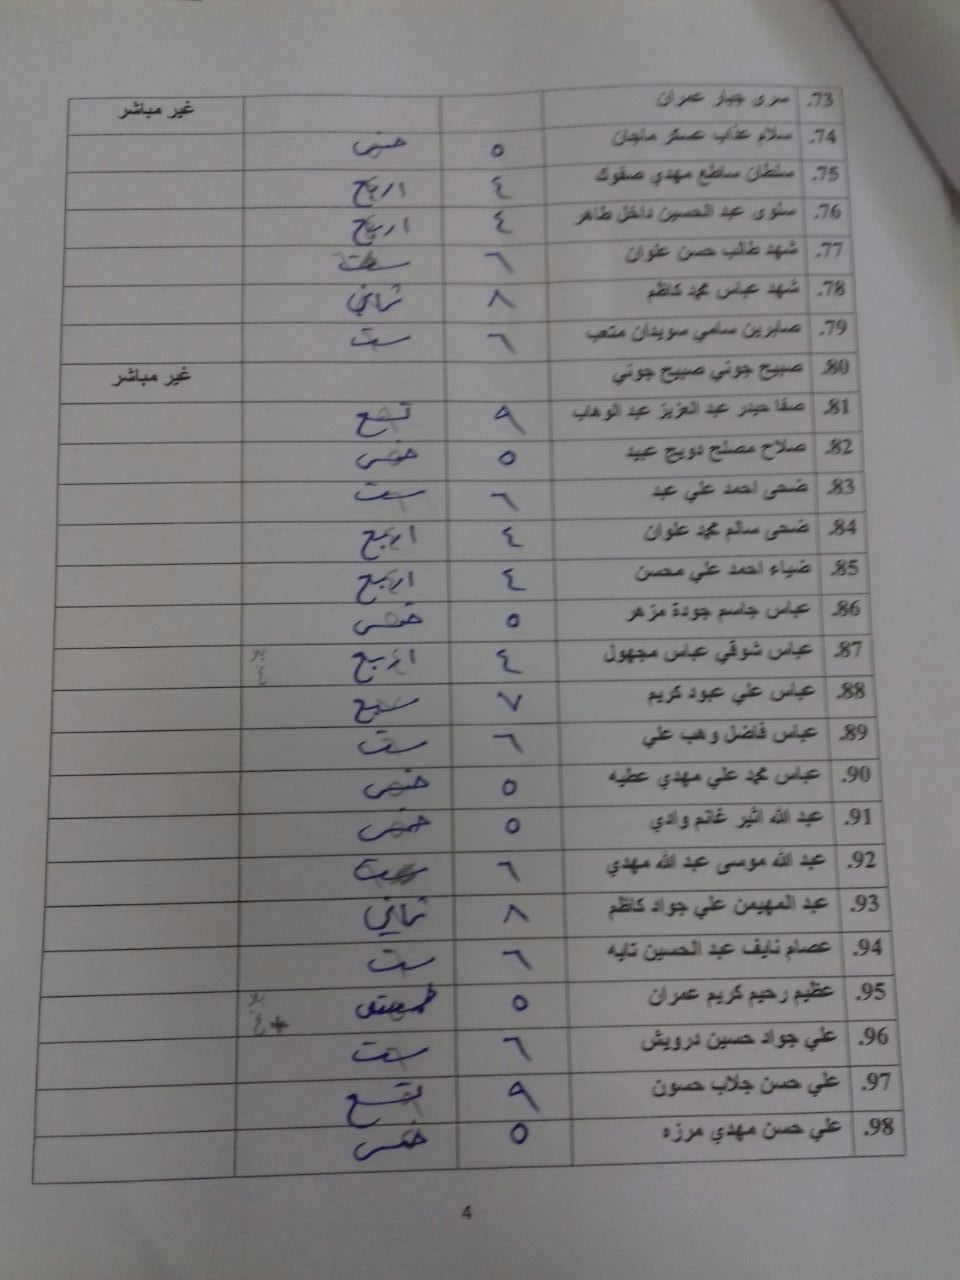 73. سرى جبار عمران غير مباشر
74. سلام عذاب عسكر ماجان ٥ خمس
75. سلطان ساطع مهدي صفوك ٤ اربع
76. سلوى عبد الحسين داخل طاهر ٤ اربع
77. شهد طالب حسن علوان ٦ ستة
78. شهد عباس محمد كاظم ٨ ثماني
79. صابرين سامي سويدان متعب ٦ ست
80. صبيح جوني صبيح جوني غير مباشر
81. صفا حيدر عبد العزيز عبد الوهاب ٩ تسع
82. صلاح مصلح دويج عبيد ٥ خمس
83. ضحى احمد علي عبد ٦ ست
84. ضحى سالم محمد علوان ٤ اربع
85. ضياء احمد علي محسن ٤ اربع
86. عباس جاسم جودة مزهر ٥ خمس
87. عباس شوقي عباس مجهول ٤ اربع
88. عباس علي عبود كريم ٧ سبع
89. عباس فاضل وهب علي ٦ ست
90. عباس محمد علي مهدي عطيه ٥ خمس
91. عبد الله اثير غانم وادي ٥ خمس
92. عبد الله موسى عبد الله مهدي ٦ ست
93. عبد المهيمن علي جواد كاظم ٨ ثماني
94. عصام نايف عبد الحسين تايه ٦ ست
95. عظيم رحيم كريم عمران ٥
96. علي جواد حسين درويش ٦ ست
97. علي حسن جلاب حسون ٩ تسع
98. علي حسن مهدي مرزه ٥ خمس
4